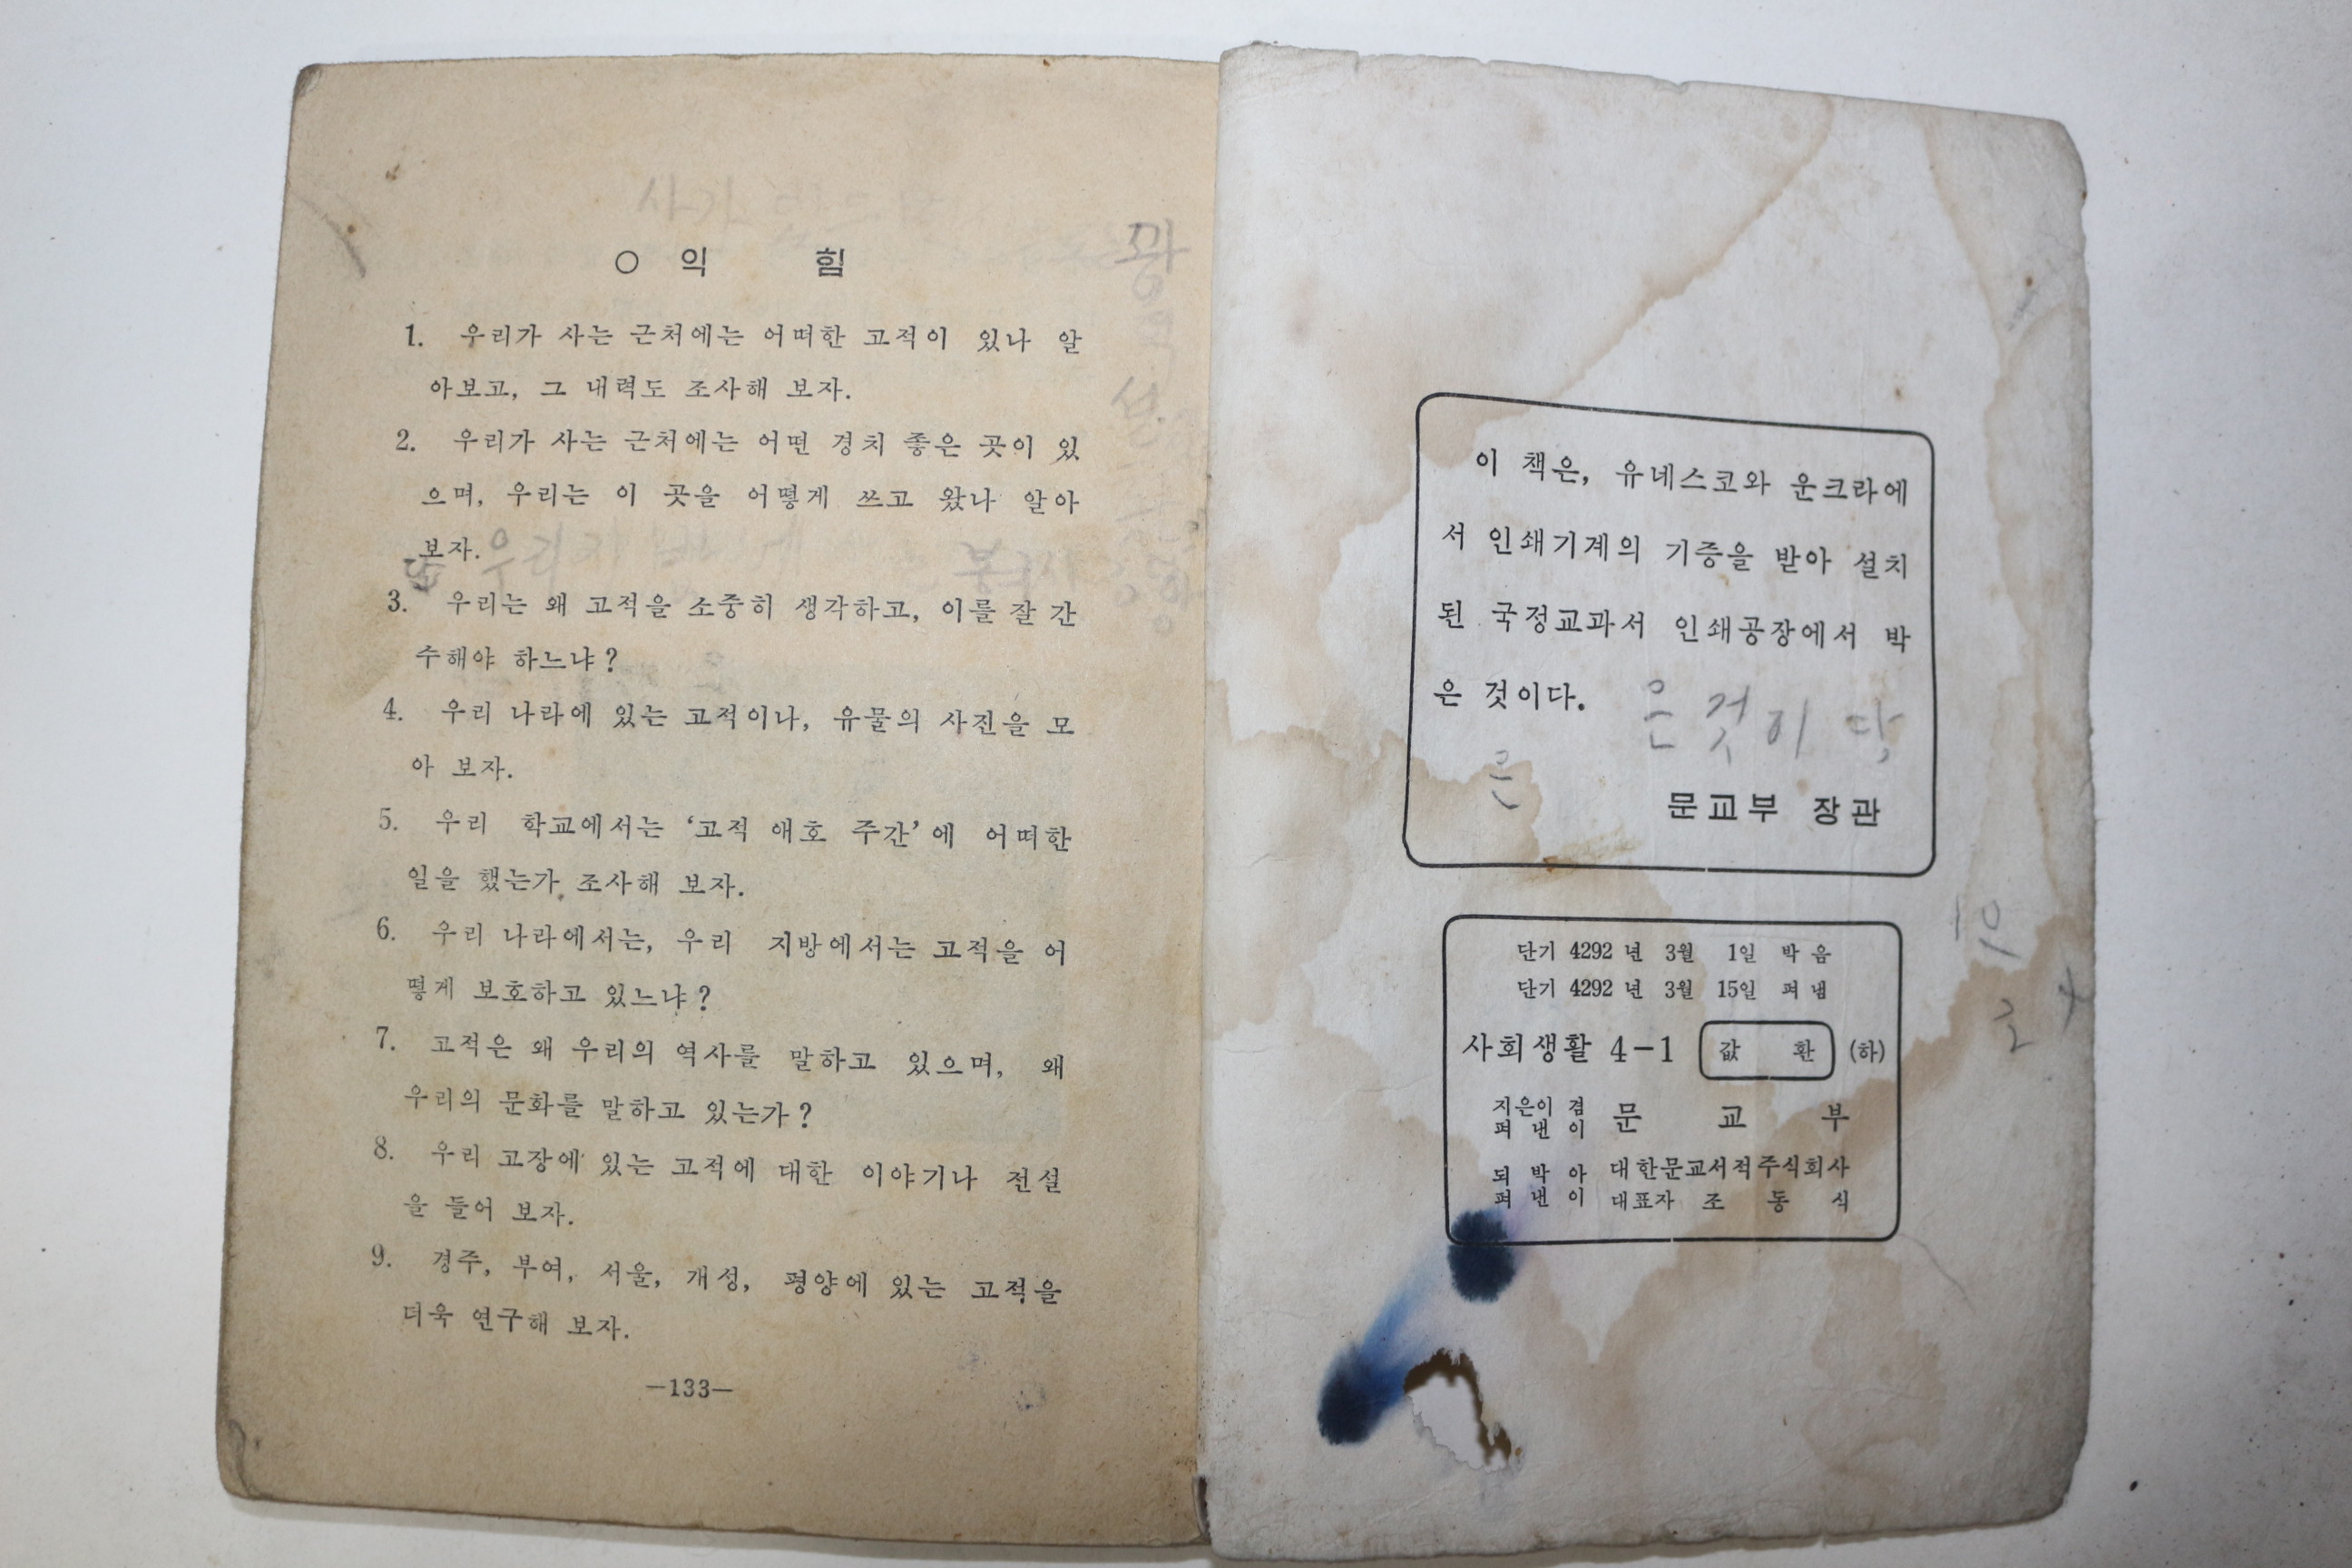 ○ 익 힘
1. 우리가 사는 근처에는 어떠한 고적이 있나 알
아보고, 그 내력도 조사해 보자.
2. 우리가 사는 근처에는 어떤 경치 좋은 곳이 있
으며, 우리는 이 곳을 어떻게 쓰고 왔나 알아
보자.
3. 우리는 왜 고적을 소중히 생각하고, 이를 잘 간
수해야 하느냐?
4. 우리 나라에 있는 고적이나, 유물의 사진을 모
아 보자.
5. 우리 학교에서는 ‘고적 애호 주간’에 어떠한
일을 했는가 조사해 보자.
6. 우리 나라에서는, 우리 지방에서는 고적을 어
떻게 보호하고 있느냐?
7. 고적은 왜 우리의 역사를 말하고 있으며, 왜
우리의 문화를 말하고 있는가?
8. 우리 고장에 있는 고적에 대한 이야기나 전설
을 들어 보자.
9. 경주, 부여, 서울, 개성, 평양에 있는 고적을
더욱 연구해 보자.
—133—
이 책은, 유네스코와 운크라에
서 인쇄기계의 기증을 받아 설치
된 국정교과서 인쇄공장에서 박
은 것이다.
은것이다
은
문교부 장관
단기 4292 년 3월 1일 박음
단기 4292 년 3월 15일 펴냄
사회생활 4-1 값 환 (하)
지은이 겸
펴 낸 이 문 교 부
되 박 아 대한문교서적주식회사
펴 낸 이 대표자 조 동 식